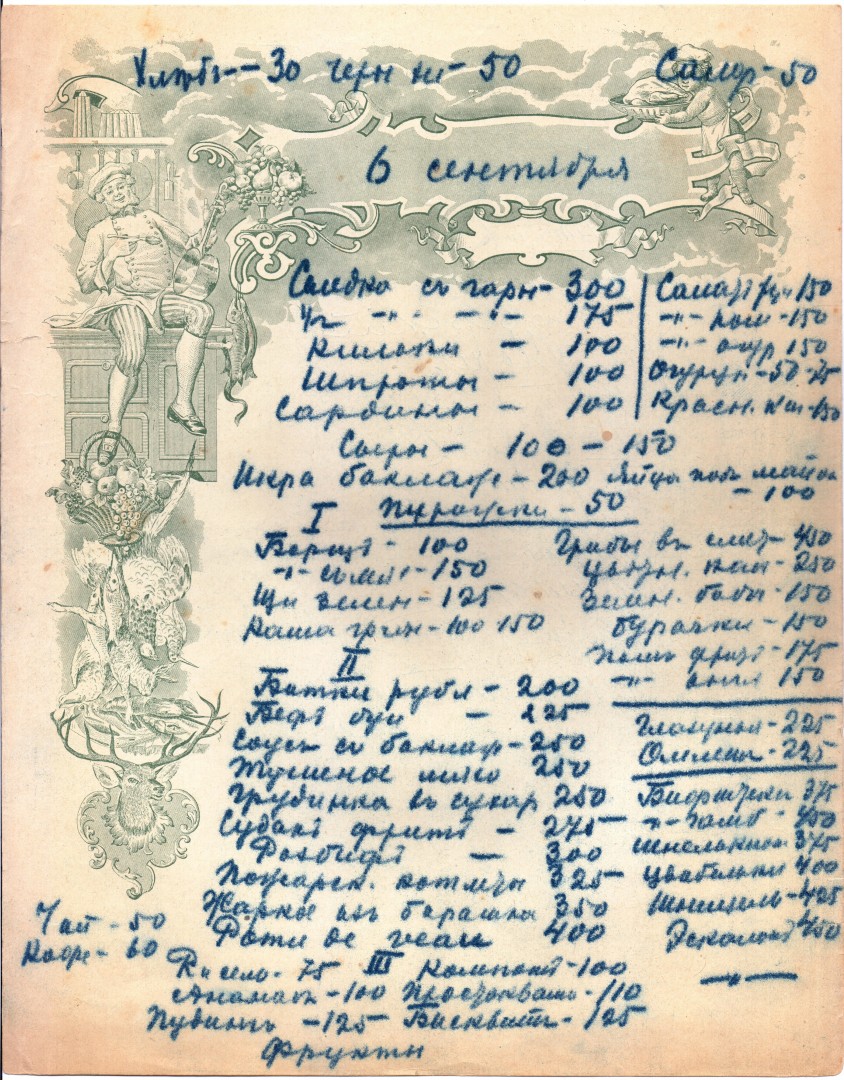 Хлѣбъ - 30 черн хл - 50 Сахар - 50
6 сентября
Селедка съ гарн - 300
1/2 -"- -"- 175
Кильки - 100
Шпроты - 100
Сардины - 100
Салатъ 150
-"- 150
-"- огур 150
Огурцы - 50-75
Красн. кап - 150
Сыры - 100 - 150
Икра баклаж - 200 Яйца подъ майон - 100
Пирожки - 50
I
Борщъ - 100
-"- 150
Щи зелен - 125
Каша греч - 100 150
Грибы въ смет - 450
Цвѣтн. кап - 250
Зелен. бобы - 150
Бурачки - 150
175
-"- англ 150
II
Битки рубл - 200
Бефъ буи - 225
Соусъ съ баклаж - 250
Тушеное мясо 250
Грудинка въ сухар 250
Судакъ фритъ - 275
Розбифъ - 300
Пожарск. котлеты 325
Жаркое изъ барашка 350
Роти de veau 400
Глазунья - 225
Омлетъ - 225
Бифштексъ 375
-"- 450
Шнельклопс 375
Цвибельклопс 400
Шницель - 425
Эскалопъ 450
Чай - 50
Кофе - 60
III
Кисель - 75 Компотъ - 100
Ананасъ - 100 Простокваша - 110
Пудингъ - 125 Бисквитъ - 125
Фрукты